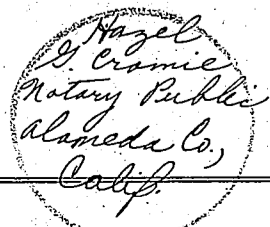 Hazel
G. Cromie
Notary Public
Alameda Co.,
Calif.